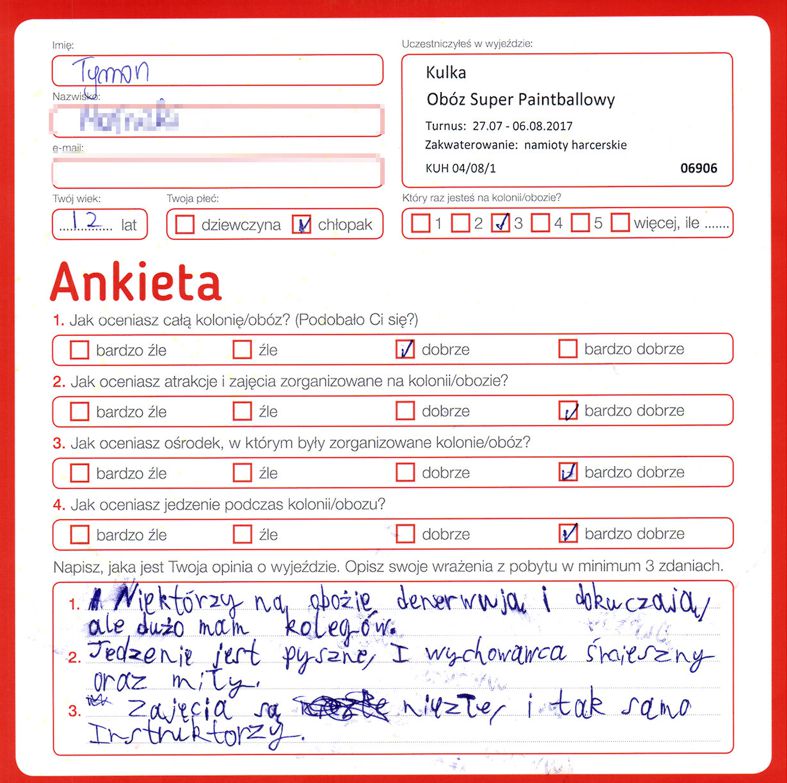 Imię:
Tymon
Nazwisko:
e-mail:
Twój wiek:
12 lat
Twoja płeć:
dziewczyna chłopak
Uczestniczyłeś w wyjeździe:
Kulka
Obóz Super Paintballowy
Turnus: 27.07 - 06.08.2017
Zakwaterowanie: namioty harcerskie
KUH 04/08/1 06906
Który raz jesteś na kolonii/obozie?
1 2 3 4 5 więcej, ile .......
Ankieta
1. Jak oceniasz całą kolonię/obóz? (Podobało Ci się?)
bardzo źle źle dobrze bardzo dobrze
2. Jak oceniasz atrakcje i zajęcia zorganizowane na kolonii/obozie?
bardzo źle źle dobrze bardzo dobrze
3. Jak oceniasz ośrodek, w którym były zorganizowane kolonie/obóz?
bardzo źle źle dobrze bardzo dobrze
4. Jak oceniasz jedzenie podczas kolonii/obozu?
bardzo źle źle dobrze bardzo dobrze
Napisz, jaka jest Twoja opinia o wyjeździe. Opisz swoje wrażenia z pobytu w minimum 3 zdaniach.
1. Niektórzy na obozie denerwują i dokuczają,
ale dużo mam kolegów.
2. Jedzenie jest pyszne, I wychowawca śmieszny
oraz miły.
3. Zajęcia są niezłe, i tak samo
Instruktorzy.